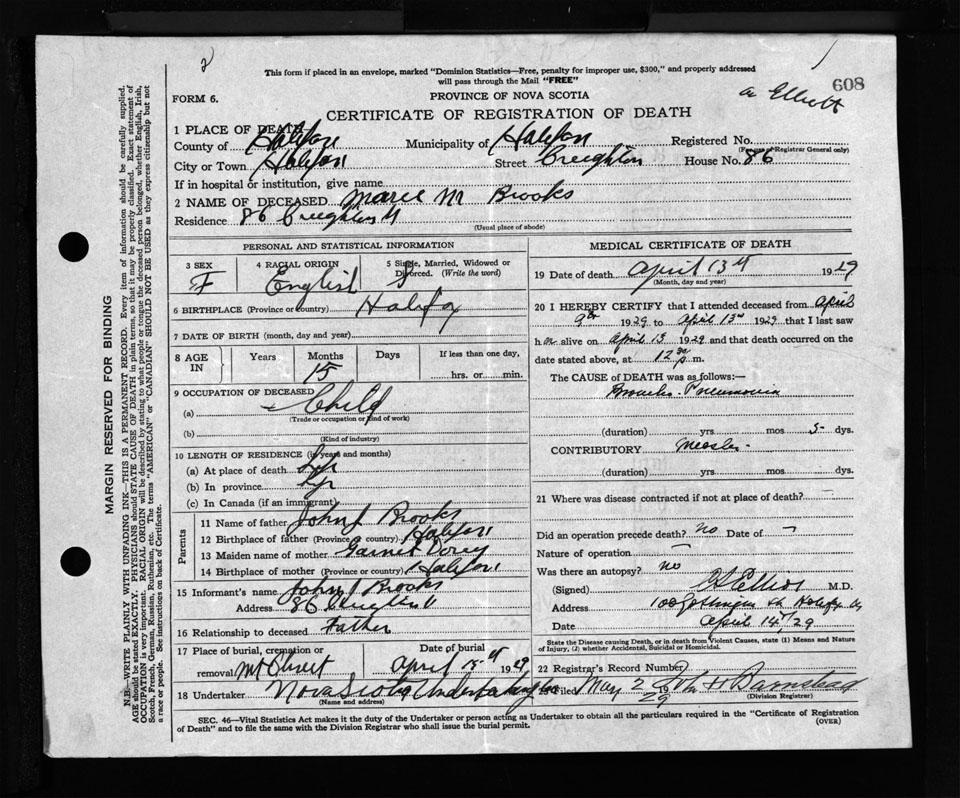 2
This form if placed in an envelope, marked "Dominion Statistics—Free, penalty for improper use, $300," and properly addressed
will pass through the Mail "FREE"
608
a Elliott
FORM 6.
PROVINCE OF NOVA SCOTIA
CERTIFICATE OF REGISTRATION OF DEATH
1 PLACE OF DEATH
County of Halifax Municipality of Halifax Registered No.
(For use of Registrar General only)
City or Town Halifax Street Creighton House No. 86
If in hospital or institution, give name
2 NAME OF DECEASED Marie M Brooks
Residence 86 Creighton St
(Usual place of abode)
PERSONAL AND STATISTICAL INFORMATION
3 SEX F
4 RACIAL ORIGIN English
5 Single, Married, Widowed or Divorced. (Write the word) S
6 BIRTHPLACE (Province or country) Halifax
7 DATE OF BIRTH (month, day and year)
8 AGE IN Years Months 15 Days If less than one day,
hrs. or min.
9 OCCUPATION OF DECEASED
(a) Child
(Trade or occupation or kind of work)
(b)
(Kind of industry)
10 LENGTH OF RESIDENCE (in years and months)
(a) At place of death Life
(b) In province Life
(c) In Canada (if an immigrant)
Parents
11 Name of father John J Brooks
12 Birthplace of father (Province or country) Halifax
13 Maiden name of mother Garnet Dorey
14 Birthplace of mother (Province or country) Halifax
15 Informant's name John J Brooks
Address 86 Creighton St
16 Relationship to deceased Father
17 Place of burial, cremation or removal Mt Olivet
Date of burial April 15th 1929
18 Undertaker Nova Scotia Undertaking Co
(Name and address)
MEDICAL CERTIFICATE OF DEATH
19 Date of death April 13th 1929
(Month, day and year)
20 I HEREBY CERTIFY that I attended deceased from April
9th 1929 to April 13th 1929 that I last saw
h er alive on April 13 1929 and that death occurred on the
date stated above, at 12 30 p m.
The CAUSE of DEATH was as follows:—
Broncho-Pneumonia
(duration) yrs mos 5 dys.
CONTRIBUTORY Measles
(duration) yrs. mos dys.
21 Where was disease contracted if not at place of death? —
Did an operation precede death? No Date of —
Nature of operation —
Was there an autopsy? No
(Signed) Elliott M.D.
Address 100 Gottingen St Halifax NS
Date April 14/29
State the Disease causing Death, or in death from Violent Causes, state (1) Means and Nature
of Injury, (2) whether Accidental, Suicidal or Homicidal.
22 Registrar's Record Number
Filed May 2 1929 John H Barnstead
(Division Registrar)
SEC. 46—Vital Statistics Act makes it the duty of the Undertaker or person acting as Undertaker to obtain all the particulars required in the "Certificate of Registration
of Death" and to file the same with the Division Registrar who shall issue the burial permit.
(OVER)
MARGIN RESERVED FOR BINDING
N.B.—WRITE PLAINLY WITH UNFADING INK—THIS IS A PERMANENT RECORD. Every item of information should be carefully supplied.
AGE should be stated EXACTLY. PHYSICIANS should STATE CAUSE OF DEATH in plain terms, so that it may be properly classified. Exact statement of
OCCUPATION is very important. RACIAL ORIGIN will be described by stating to what people or tongue the deceased person belonged, whether English, Irish,
Scotch, French, German, Russian, Ruthenian, etc. The terms "AMERICAN" or "CANADIAN" SHOULD NOT BE USED as they express citizenship but not
a race or people. See instructions on back of Certificate.